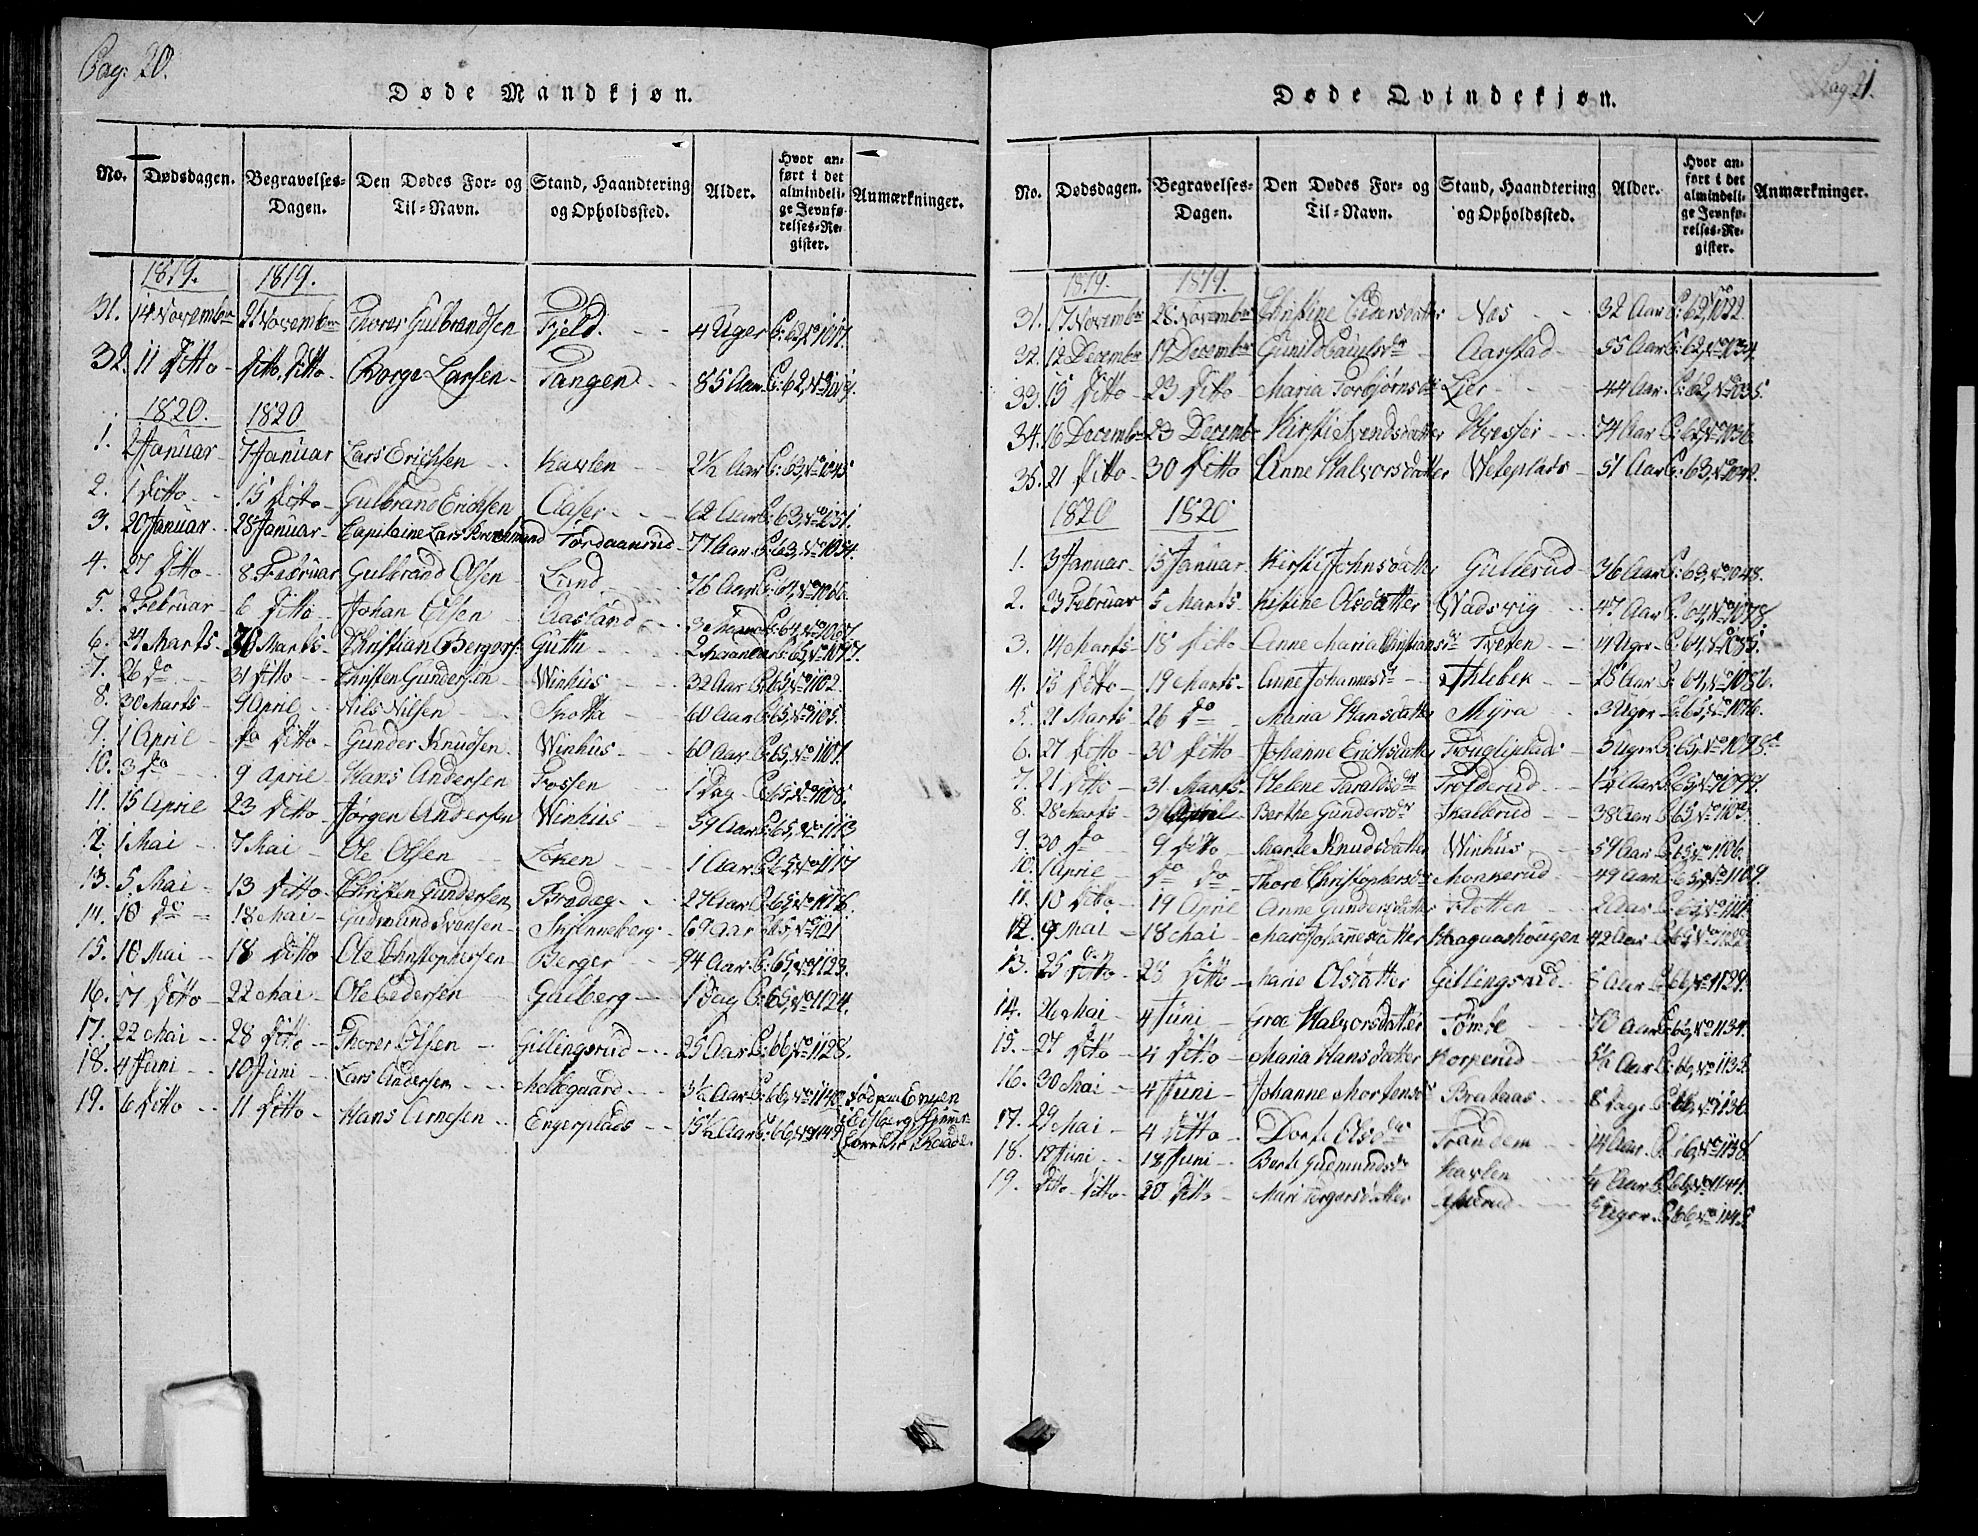 Pag: 20.
Døde Mandkjøn.
No. Dødsdagen. Begravelses-Dagen. Den Dødes For- og Til-Navn. Stand, Haandtering og Opholdssted. Alder. Hvor anført i det almindelige Jevnførelses-Register. Anmærkninger.
1819. 1819.
31. 14 November 21 November Thorer Gulbrandsen Fjeld. 4 Uger P: 62, No 1017.
32. 11 Ditto Ditto Ditto Borge Larsen Tangen 85 Aar P: 62, No 1019.
1820. 1820
1. 2 Januar 7 Januar Lars Erichsen Kaxlen 2½ Aar P: 63, No 1045
2. 1 Ditto 15 Ditto Gulbrand Erichsen Aaser 62 Aar P: 63, No 1051.
3. 20 Januar 28 Januar Capitaine Lars Tordaanrud 77 Aar P: 63, No 1054.
4. 27 Ditto 8. Februar Gulbrand Olsen Lund 76 Aar P: 64, No 1066.
5. 2 Februar 6 Ditto Johan Olsen Aasland 3 P: 64, No 1067.
6. 24 Marts 30 Marts Christian Guth 2 Maaneder P: 65, No 1097.
7. 26 do 31 Ditto Christen Gundersen Winhüs 32 Aar P: 65, No 1102.
8. 30 Marts 9 April Nils Nilsen Spotta 60 Aar P: 65, No 1105.
9. 1 April do Ditto Gunder Knudsen Winhüs 60 Aar P: 65, No 1107.
10. 3 do 9 April Hans Andersen Fossen 1 Dag P: 65, No 1108.
11. 15 April 23 Ditto Jørgen Andersen Winhüs 59 Aar P: 65, No 1113
12. 1 Mai 7 Mai Ole Olsen Løken 1 Aar P: 65, No 1117
13. 5 Mai 13 Ditto Christen Gundersen Fradeg 27 Aar P: 65, No 1118.
14. 10 do 18 Mai Gudmund Svensen Skinneberg 69 Aar P: 65, No 1121
15. 10 Mai 18 Ditto Ole Christophersen Berger 94 Aar P: 65, No 1123.
16. 17 Ditto 22 Mai Ole Pedersen Gulberg 1 Dag P: 65, No 1124.
17. 22 Mai 28 Ditto Thorer Olsen Gillingsrud 25 Aar P: 66, No 1128.
18. 4 Juni 10 Juni Lars Andersen Moltegaard 3½ Aar P: 66, No 1140
19. 6 Ditto 11 Ditto Hans Arnesen Engerplads 15½ Aar P: 66, No 1143 Død paa Engen Eidsberg
Pag 21.
Døde Qvindekjøn.
No. Dødsdagen. Begravelses-Dagen. Den Dødes For- og Til-Navn. Stand, Haandtering og Opholdssted. Alder. Hvor anført i det almindelige Jevnførelses-Register. Anmærkninger.
1819. 1819.
31. 17 November 28. November Christine Pedersdatter Næs 32 Aar P: 62, 1022.
32. 12 December 19 December Gunild Paulsdr Aarstad 55 Aar P: 62, No 1034.
33. 15 Ditto 23 Ditto Maria Torbjørnsdr Lier 44 Aar P: 62, No 1035.
34. 16 December 23 December Kirsti Svendsdatter 74 Aar P: 62, No 1036
35. 21 Ditto 30 Ditto Anne Halvorsdatter Weleplads 51 Aar P: 63, No 1042.
1820 1820
1. 3 Januar 15 Januar Kirsti Johnsdatter Gullerud 36 Aar P: 63, No 1048.
2. 23 Februar 5 Marts Kistine Olsdatter Wadswiig 47 Aar P: 64, No 1078.
3. 14 Marts 18 Ditto Anne Maria Christiansdr Tveten 4 Uger P: 64, No 1085.
4. 13 Ditto 19 Marts Anne Johannesdr 28 Aar P: 64, No 1086.
5. 21 Marts 26 do Maria Hansdatter Myra 3 Uger P: 65, No 1096.
6. 27 Ditto 30 Ditto Johanne Erichsdatter Fougliplads 3 Uger P: 65, No 1098
7. 21 Ditto 31 Marts Helene Taraldsdr Frolderud 1½ Aar P: 65, No 1099.
8. 28 Marts 3 April Berthe Gundersdr Skallerud 38 Aar P: 65, No 1103.
9. 30 do 9 Ditto Marte Knudsdatter Winhüs 59 Aar P: 65, No 1106.
10. 1 April do do Thore Christophersdr Monnerud 49 Aar P: 65, No 1109.
11. 10 Ditto 19 April Anne Gundersdatter Flotten 2 Aar P: 65, No 1111
12. 9 Mai 18 Mai Mari Johannesdatter Haagaashougen 42 Aar P: 65, No 1122.
13. 25 Ditto 25 Ditto Marie Olsdatter Gillingsrud 5 Aar P: 66, No 1129.
14. 26 Mai 4 Juni Groe Halvorsdatter Tømte 70 Aar P: 66, No 1134.
15. 27 Ditto 4 Ditto Maria Hansdatter Korperud 5½ Aar P: 66, No 1135.
16. 30 Mai 4 Juni Johanne Mortensdr Brataas 8 Dage P: 66, No 1136
17. 29 Mai 4 Ditto Dorte Olsdr Trandem 14 Aar P: 66, No 1138
18. 12 Juni 18 Juni Berte Gudmundsdr Kaxlen ¼ Aar P: 66, No 1144.
19. Ditto Ditto 20 Ditto Mari Torgersdatter 5 Uger P: 66, No 1145